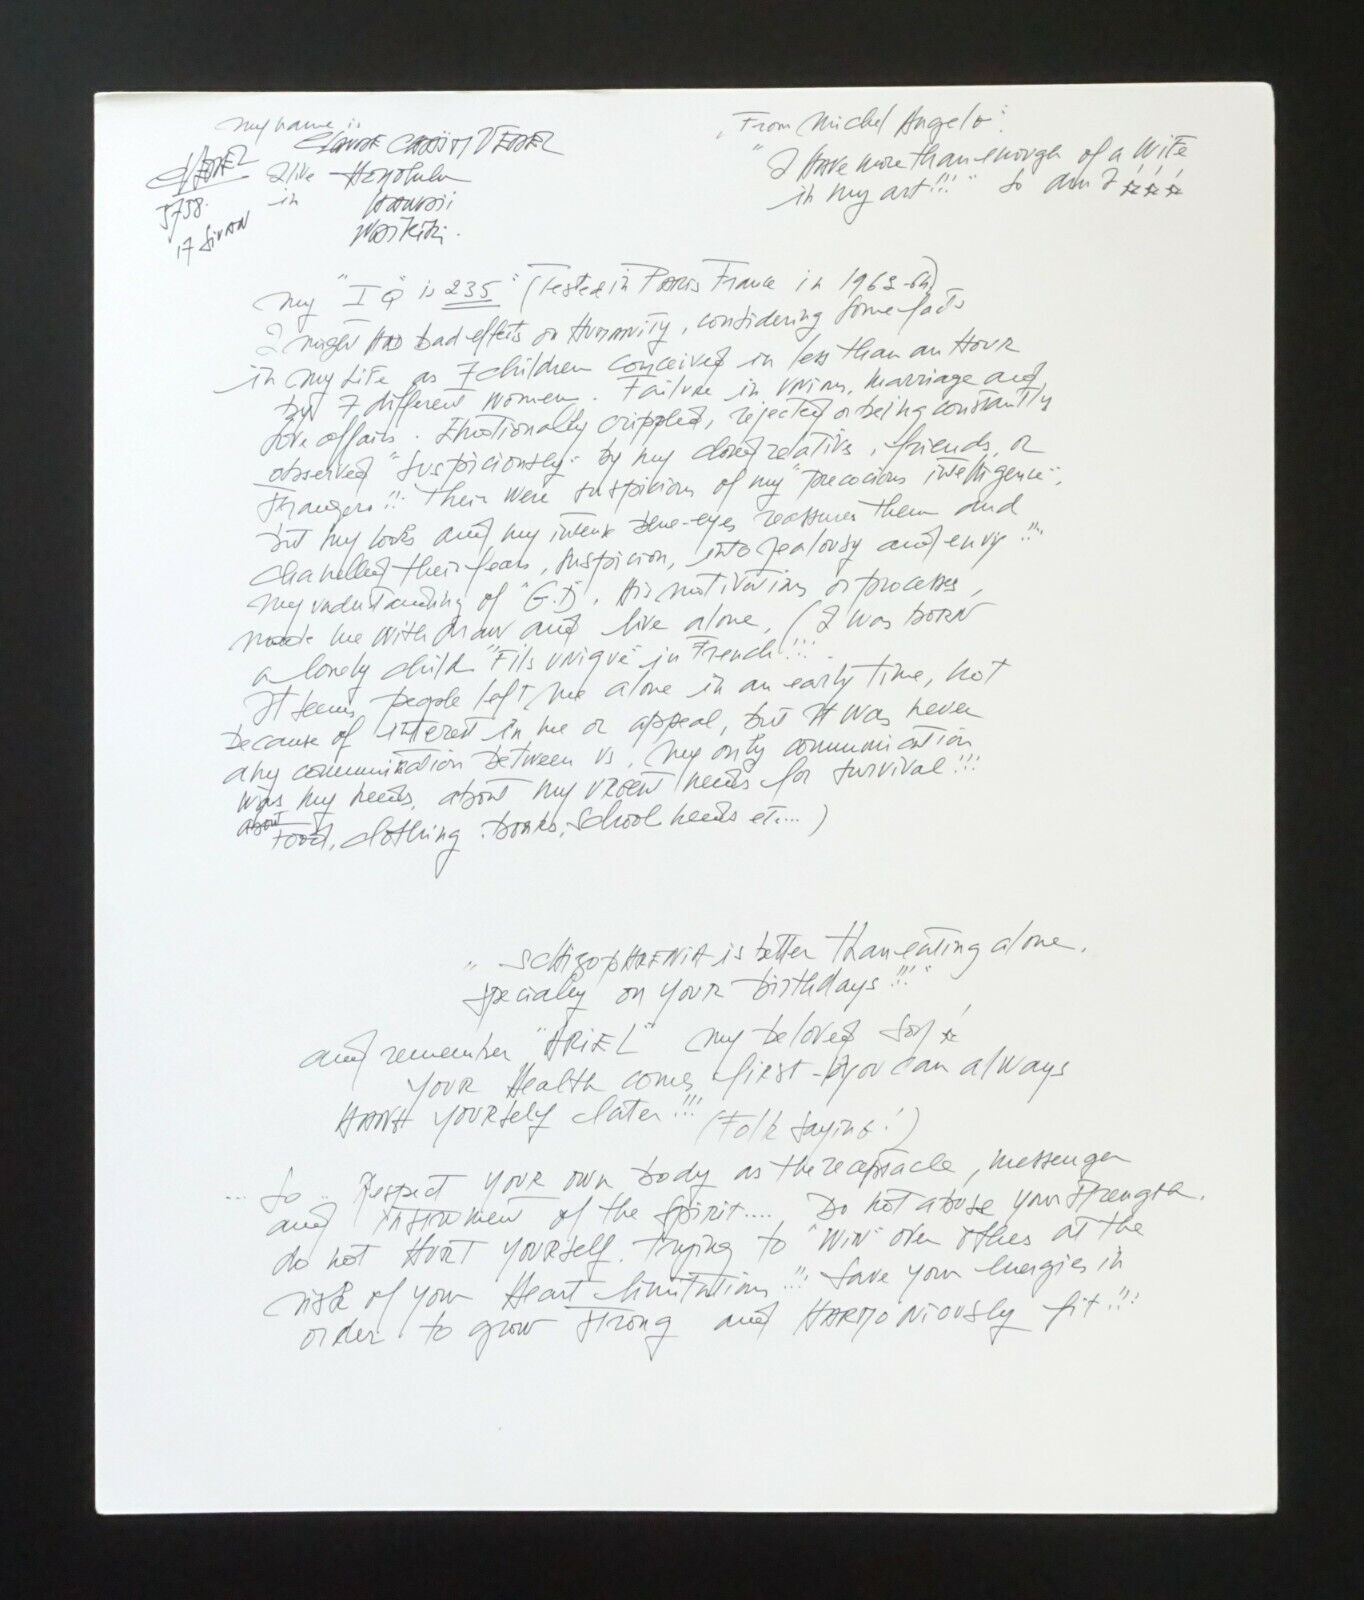 My name is
CLAUDE CHAIM VEDEL
CVEDEL
5758.
17 SIVAN
I live
in
Honolulu
HAWAII
WAIKIKI.
"From Michel Angelo":
"I HAVE more than enough of a WIFE
in my art!!!" So am I
My "IQ" is 235" (Tested in PARIS France in 1963-64)
I might HAD bad effects on HUMANITY, considering some facts
in my LIFE as 7 children conceived in less than an HOUR
by 7 different women. Failure in union, marriage and
love affairs. Emotionally crippled, rejected or being constantly
observed "suspiciously" by my closed relatives, friends, or
strangers!!! Their were suspicions of my "precocious intelligence",
but my looks and my intense blue-eyes reassures them and
chanelled their fears, suspicion, into jealousy and envy!!!
My understanding of "G.D", His motivations or processes,
made me withdraw and live alone, (I was BORN
a lonely child "Fils unique" in French!!!
It seems people left me alone in an early time, not
because of interest in me or appeal, but it was never
any communication between us, my only communication
was my needs, about my URGENT needs for survival!!!
about Food, clothing, books, school needs etc...)
"SCHIZOPHRENIA is better than eating alone,
specialy on your birthdays!!!"
and remember "ARIEL" my beloved son
YOUR Health comes first - you can always
HANG yourself later!!! (Folk saying!)
... So Respect YOUR own body as the receptacle, messenger
and instrument of the spirit.... Do not abuse your strength.
do not HURT YOURself. trying to "WIN" over others at the
risk of your Heart limitations!!! Save your energies in
order to grow strong and HARMONIOUSLY fit!!!